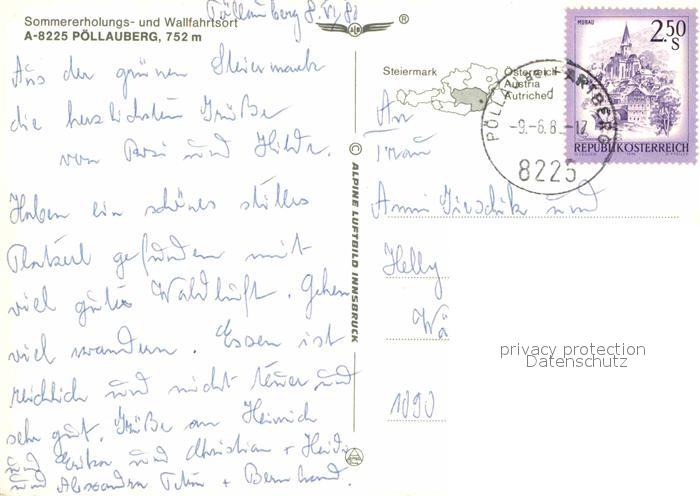 Pöllauberg 8.VI.80
Sommererholungs- und Wallfahrtsort
A-8225 PÖLLAUBERG, 752 m
Aus der grünen Steiermark
die herzlichsten Grüße
von Resi und Hilde.
Haben ein schönes stilles
Platzerl gefunden mit
viel guter Waldluft. Gehen
viel wandern. Essen ist
reichlich und nicht teuer und
sehr gut. Grüße an Heinrich
und Erika und Christian + Heidi
und Alexandra + Bernhard.
© ALPINE LUFTBILD INNSBRUCK
®
Steiermark
Österreich
Austria
Autriche
PÖLLAU bei HARTBERG
-9.-6.8 -17
8225
MURAU
2.50
S
REPUBLIK ÖSTERREICH
An
Frau
Anni und
Helly
Wä
1090
privacy protection
Datenschutz